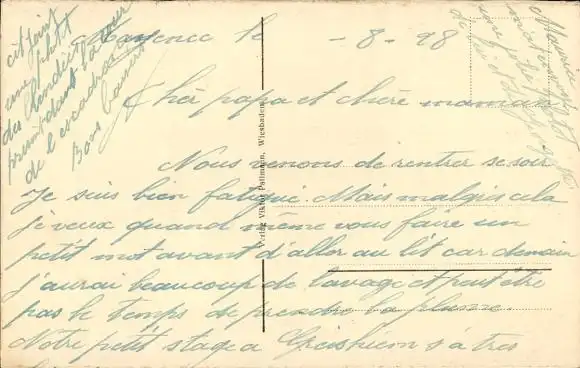 Mayence le - 8 - 28
Cher papa et chère maman
Nous venons de rentrer se soir
Je suis bien fatigué. Mais malgis cela
je veux quand même vous faire un
petit mot avant d'allor au lit car demain
j'aurai beaucoup de lavage et peut être
pas le temps de prendre la plume.
Notre petit stage a Greishiem s'a très
ci joint
une photo
du
pendant
de l'escadron
Bons baisers
Verlag Viktor Pallmann, Wiesbaden